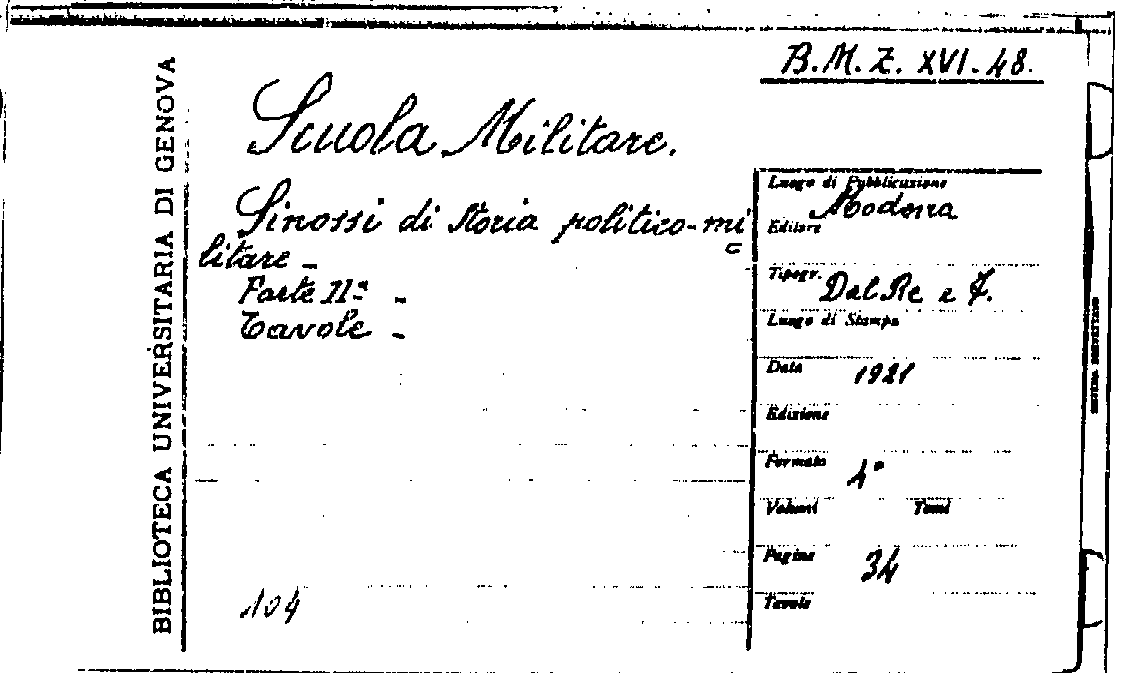 BIBLIOTECA UNIVERSITARIA DI GENOVA
B.M.Z. XVI-48.
Scuola Militare.
Sinossi di Storia politico-mi
litare -
Parte IIª -
Tavole -
104
Luogo di Pubblicazione
Modena
Editore
Tipogr. Dal Re e F.
Luogo di Stampa
Data 1921
Edizione
Formato 4°
Volumi Tomi
Pagine 34
Tavole